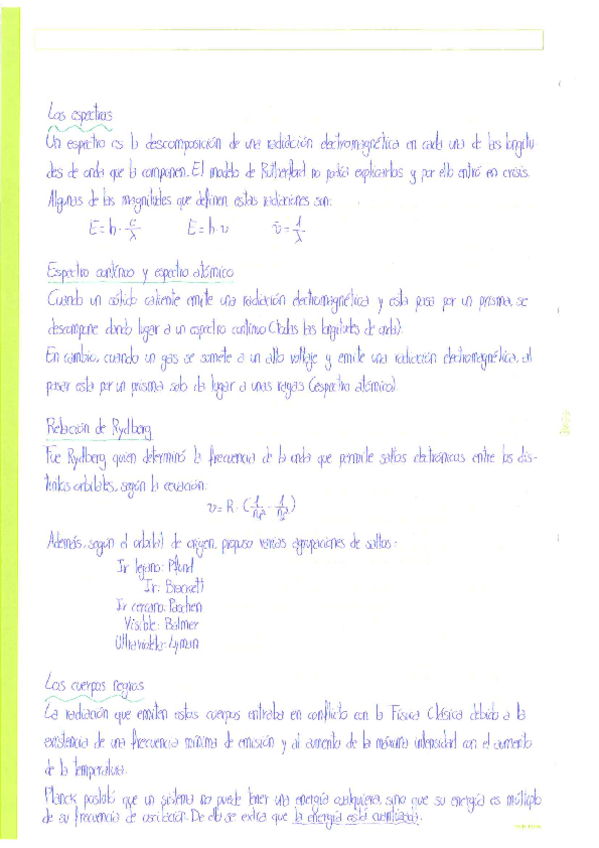 Los espectros
Un espectro es la descomposición de una radiación electromagnética en cada una de las longitu
des de onda que la componen. El modelo de Rutherford no podía explicarlos y por ello entró en crisis.
Algunas de las magnitudes que definen estas radiaciones son:
E = h · c/λ E = h · ν ν̄ = 1/λ
Espectro continuo y espectro atómico
Cuando un sólido caliente emite una radiación electromagnética y esta pasa por un prisma, se
descompone dando lugar a un espectro continuo (todas las longitudes de onda).
En cambio, cuando un gas se somete a un alto voltaje y emite una radiación electromagnética, al
pasar esta por un prisma solo da lugar a unas rayas (espectro atómico).
Relación de Rydberg
Fue Rydberg quien determinó la frecuencia de la onda que permite saltos electrónicos entre los dis-
tintos orbitales, según la ecuación:
ν = R · (1/n₁² - 1/n₂²)
Además, según el orbital de origen, propuso varias agrupaciones de saltos:
Ir lejano: Pfund
Ir: Brackett
Ir cercano: Paschen
Visible: Balmer
Ultravioleta: Lyman
Los cuerpos negros
La radiación que emiten estos cuerpos entraba en conflicto con la Física Clásica debido a la
existencia de una frecuencia mínima de emisión y al aumento de la máxima intensidad con el aumento
de la temperatura.
Planck postuló que un sistema no puede tener una energía cualquiera, sino que su energía es múltiplo
de su frecuencia de oscilación. De ello se extrae que la energía está cuantizada.